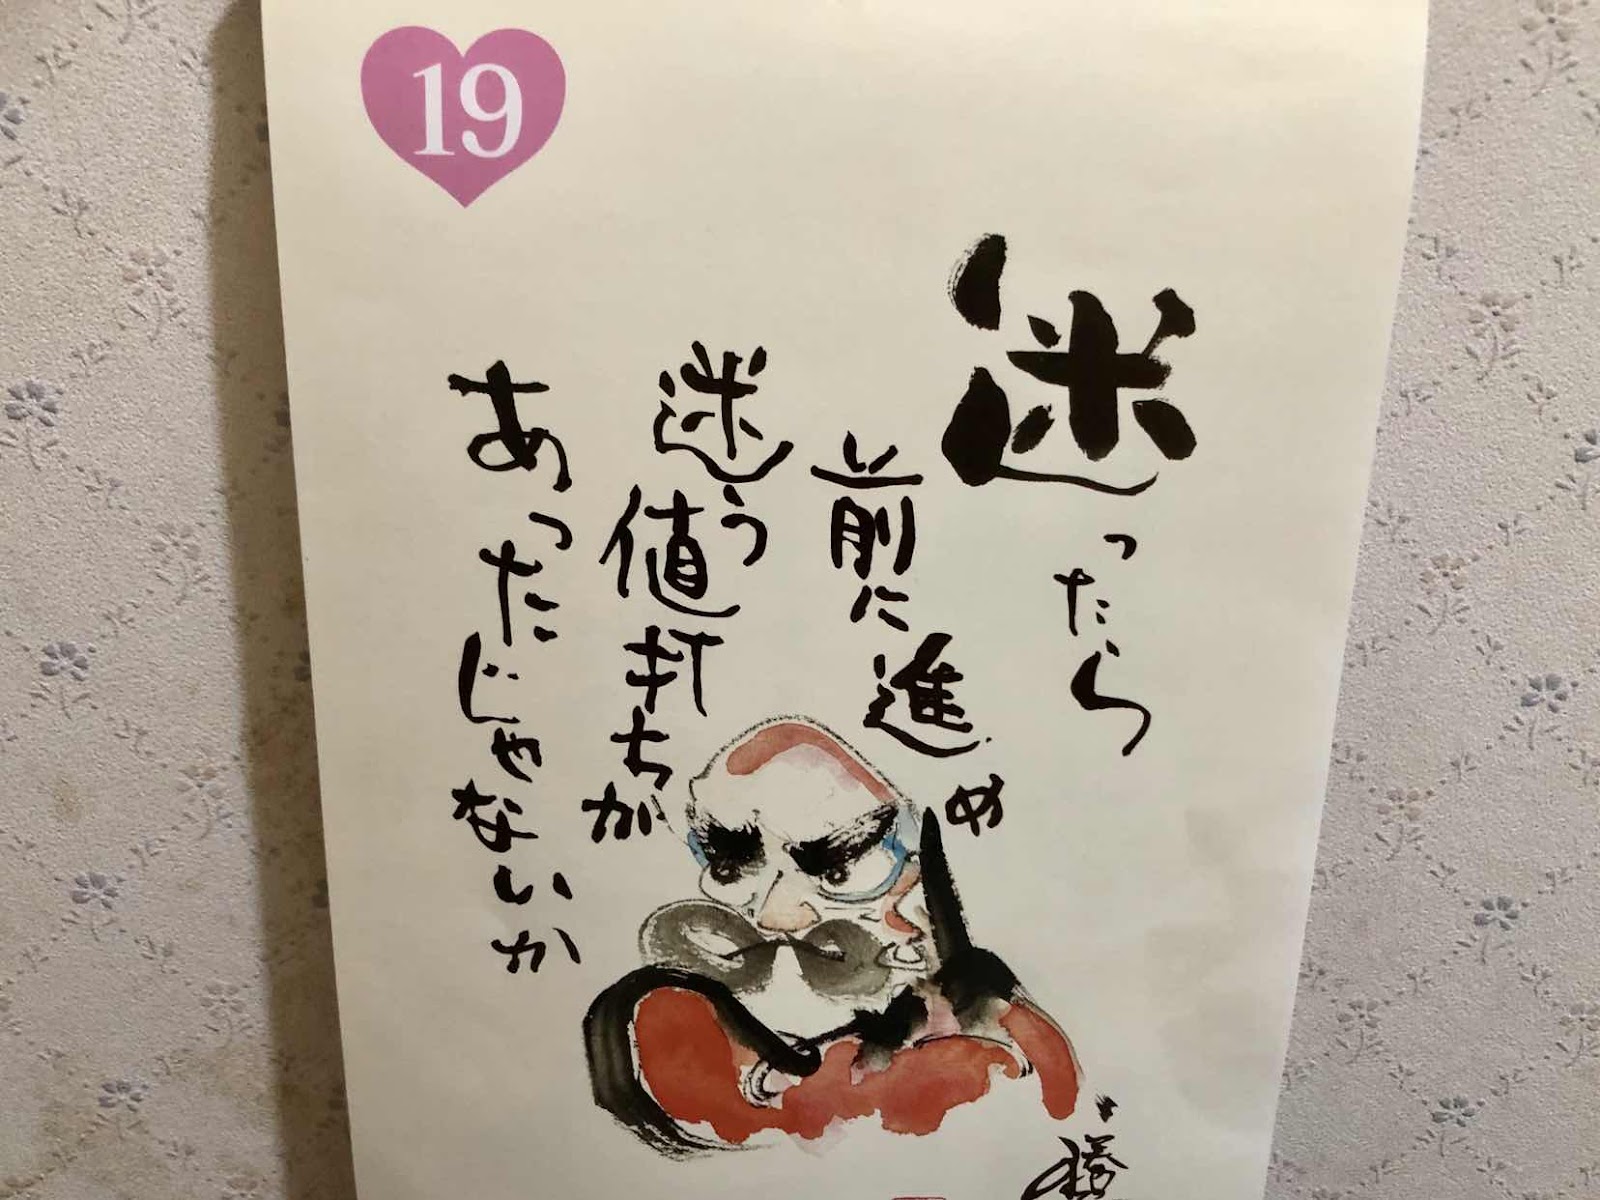 19
迷ったら
前に進め
迷う値打ちが
あったじゃないか